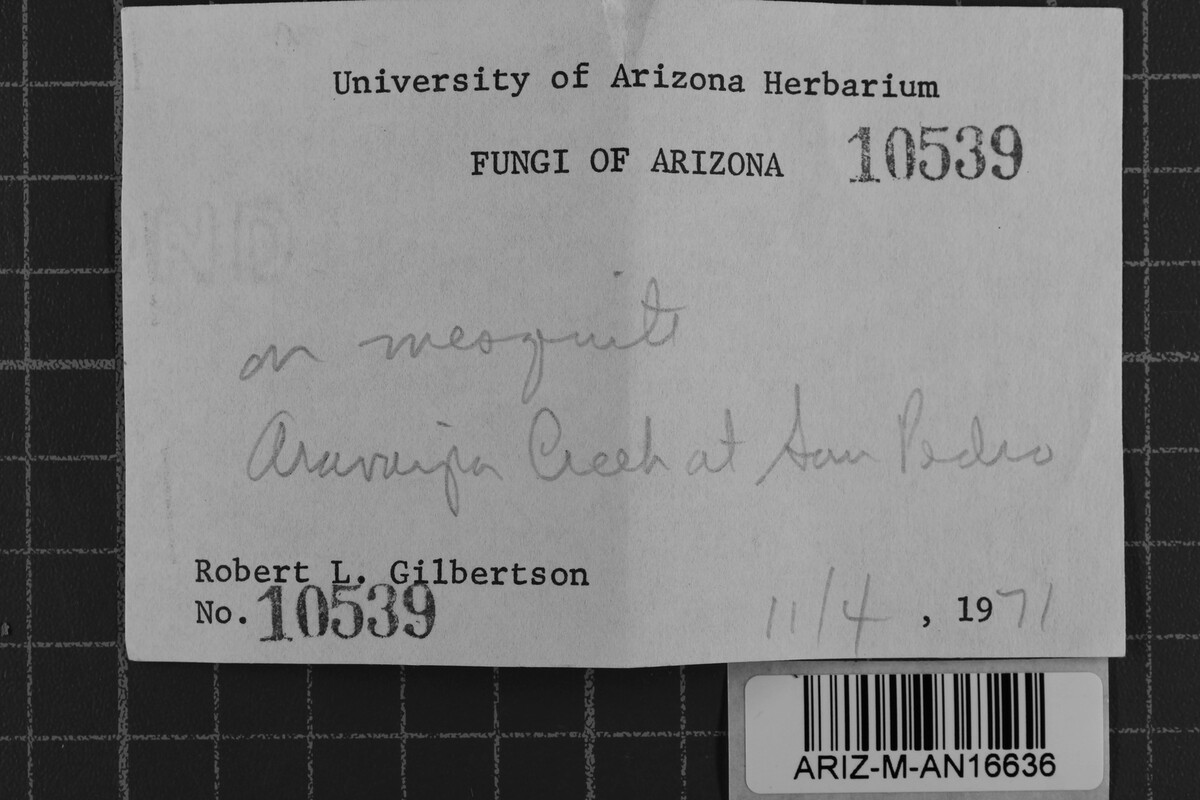 University of Arizona Herbarium
FUNGI OF ARIZONA 10539
on mesquite
Aravaipa Creek at San Pedro
Robert L. Gilbertson
No. 10539 11/4, 1971
ARIZ-M-AN16636